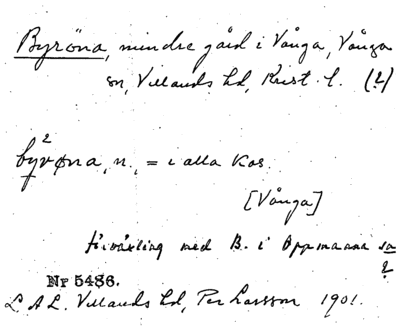 Byröna, mindre gård i Vånga, Vånga
sn, Villands hd, Krist. l. (?)
2
byrøna, n., = i alla kas.
[Vånga]
förväxling med B. i Oppmanna sn
?
Nr 5486.
L A L. Villands hd, Per Larsson 1901.